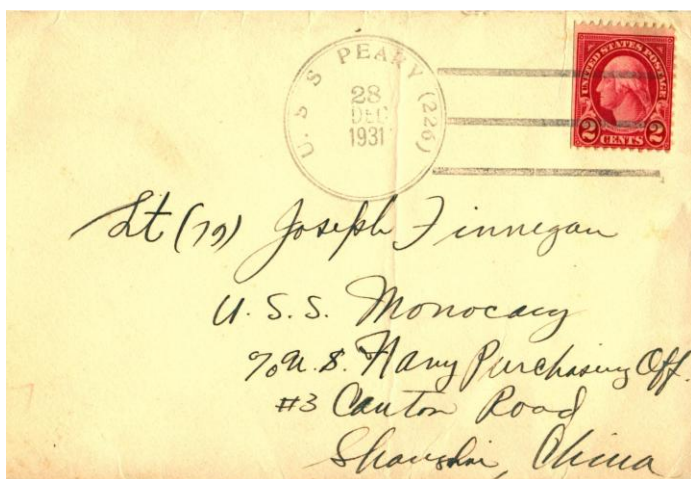 U. S. S. PEARY (226)
28
DEC
1931
UNITED STATES POSTAGE
2 CENTS 2
Lt (jg) Joseph Finnegan
U. S. S. Monocacy
℅ U. S. Navy Purchasing Off.
#3 Canton Road
Shanghai, China